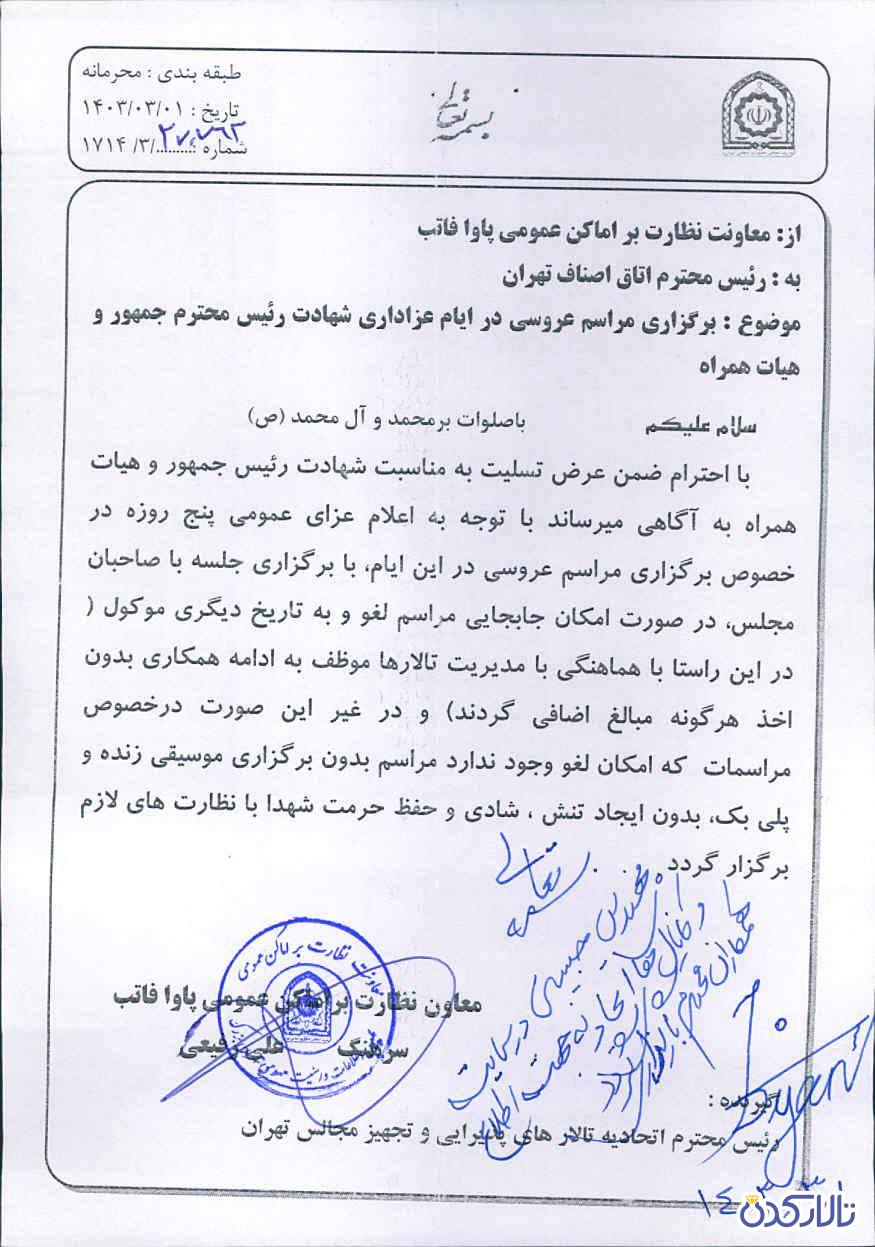 بسمه تعالی
طبقه بندی : محرمانه
تاریخ : ۱۴۰۳/۰۳/۰۱
شماره ۲۷۰۷۶۲/۳/ ۱۷۱۴
از: معاونت نظارت بر اماکن عمومی پاوا فاتب
به : رئیس محترم اتاق اصناف تهران
موضوع : برگزاری مراسم عروسی در ایام عزاداری شهادت رئیس محترم جمهور و
هیات همراه
سلام علیکم
باصلوات برمحمد و آل محمد (ص)
با احترام ضمن عرض تسلیت به مناسبت شهادت رئیس جمهور و هیات
همراه به آگاهی میرساند با توجه به اعلام عزای عمومی پنج روزه در
خصوص برگزاری مراسم عروسی در این ایام، با برگزاری جلسه با صاحبان
مجلس، در صورت امکان جابجایی مراسم لغو و به تاریخ دیگری موکول (
در این راستا با هماهنگی با مدیریت تالارها موظف به ادامه همکاری بدون
اخذ هرگونه مبالغ اضافی گردند) و در غیر این صورت درخصوص
مراسمات که امکان لغو وجود ندارد مراسم بدون برگزاری موسیقی زنده و
پلی بک، بدون ایجاد تنش ، شادی و حفظ حرمت شهدا با نظارت های لازم
برگزار گردد
بسمه تعالی
مهندس حبیبی در سایت
و کانال
جهت اطلاع
همکاران محترم
معاون نظارت بر اماکن عمومی پاوا فاتب
سرهنگ علی رفیعی
معاونت نظارت بر اماکن عمومی
گیرنده :
رئیس محترم اتحادیه تالار های پذیرایی و تجهیز مجالس تهران
تالارکدن